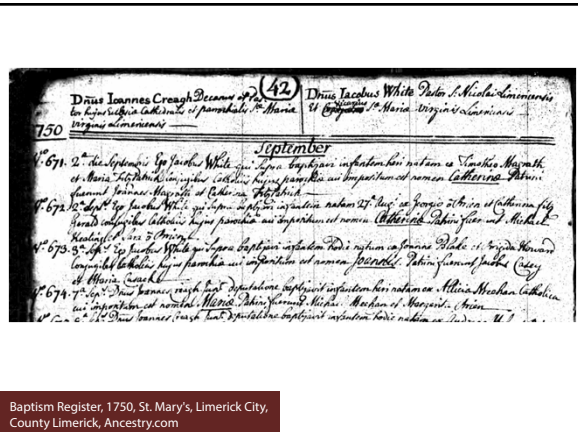 (42)
Dñus Ioannes Creagh Decanus et Pas
tor hujus Ecclesia Cathedralis et parochialis Sta Maria
Virginis Limericensis
Dñus Iacobus White Pastor S. Nicolai Limericensis
Et Vicarius Sta Maria Virginis Limericensis
1750
September
No. 671. 2a die Septembris Ego Jacobus White qui supra baptizavi infantem heri natam ex Timotheo Magrath
et Maria Fitzpatrick conjugibus Catholicis hujus parochia cui impositum est nomen Catherina Patrini
fuerunt Joannes Magrath et Catherina Fitzpatrick
No. 672. 2a Septr. Ego Jacobus White qui supra baptizavi infantem natam 27a Augti ex Georgio o Brien et Catherina fitz
Gerald conjugibus Catholicis hujus parochia cui impositum est nomen Catherina Patrini fuerunt Michael
Kealing et o Brien
No. 673. 3a Septr. Ego Jacobus White qui supra baptizavi infantem hodie natum ex Joanne Blake et Brigida Howard
conjugibus Catholicis hujus parochia cui impositum est nomen Joannes Patrini fuerunt Jacobus Casey
et Maria
No. 674. 7a Septr. Dñus Joannes Creagh deputatione baptizavit infantem heri natam ex Allicia Meehan Catholica
cui impositum est nomen Maria Patrini fuerunt Michael Meehan et Brien
Dñus Joannes Creagh deputatione baptizavit infantem hodie natam ex
Baptism Register, 1750, St. Mary's, Limerick City,
County Limerick, Ancestry.com